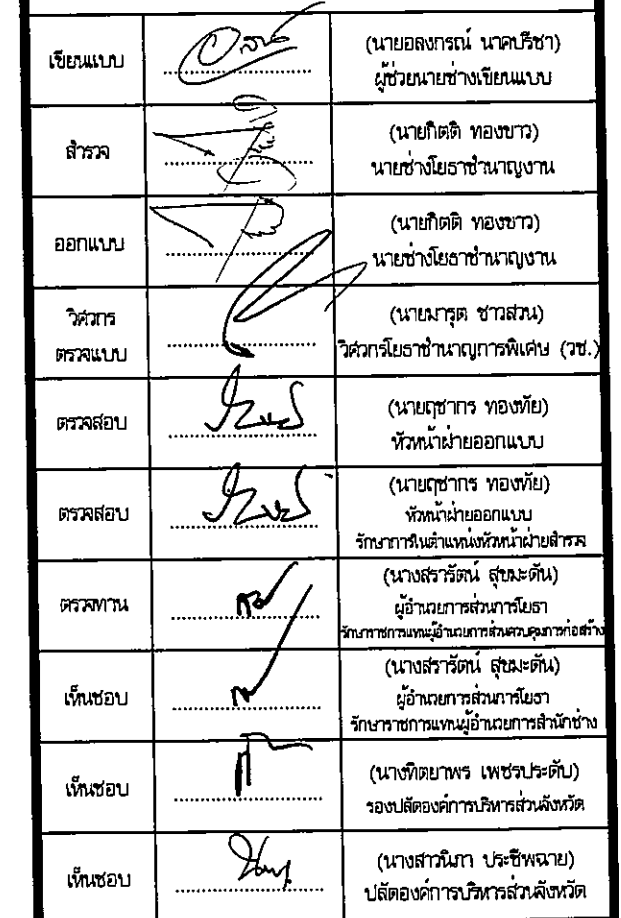 เขียนแบบ
(นายอลงกรณ์ นาคปรีชา)
ผู้ช่วยนายช่างเขียนแบบ
สำรวจ
(นายกิตติ ทองขาว)
นายช่างโยธาชำนาญงาน
ออกแบบ
(นายกิตติ ทองขาว)
นายช่างโยธาชำนาญงาน
วิศวกร
ตรวจแบบ
(นายมารุต ชาวสวน)
วิศวกรโยธาชำนาญการพิเศษ (วช.)
ตรวจสอบ
(นายฤชากร ทองทัย)
หัวหน้าฝ่ายออกแบบ
ตรวจสอบ
(นายฤชากร ทองทัย)
หัวหน้าฝ่ายออกแบบ
รักษาการในตำแหน่งหัวหน้าฝ่ายสำรวจ
ตรวจทาน
(นางสรารัตน์ สุขมะตัน)
ผู้อำนวยการส่วนการโยธา
รักษาราชการแทนผู้อำนวยการส่วนควบคุมการก่อสร้าง
เห็นชอบ
(นางสรารัตน์ สุขมะตัน)
ผู้อำนวยการส่วนการโยธา
รักษาราชการแทนผู้อำนวยการสำนักช่าง
เห็นชอบ
(นางทิตยาพร เพชรประดับ)
รองปลัดองค์การบริหารส่วนจังหวัด
เห็นชอบ
(นางสาวนิภา ประชีพฉาย)
ปลัดองค์การบริหารส่วนจังหวัด